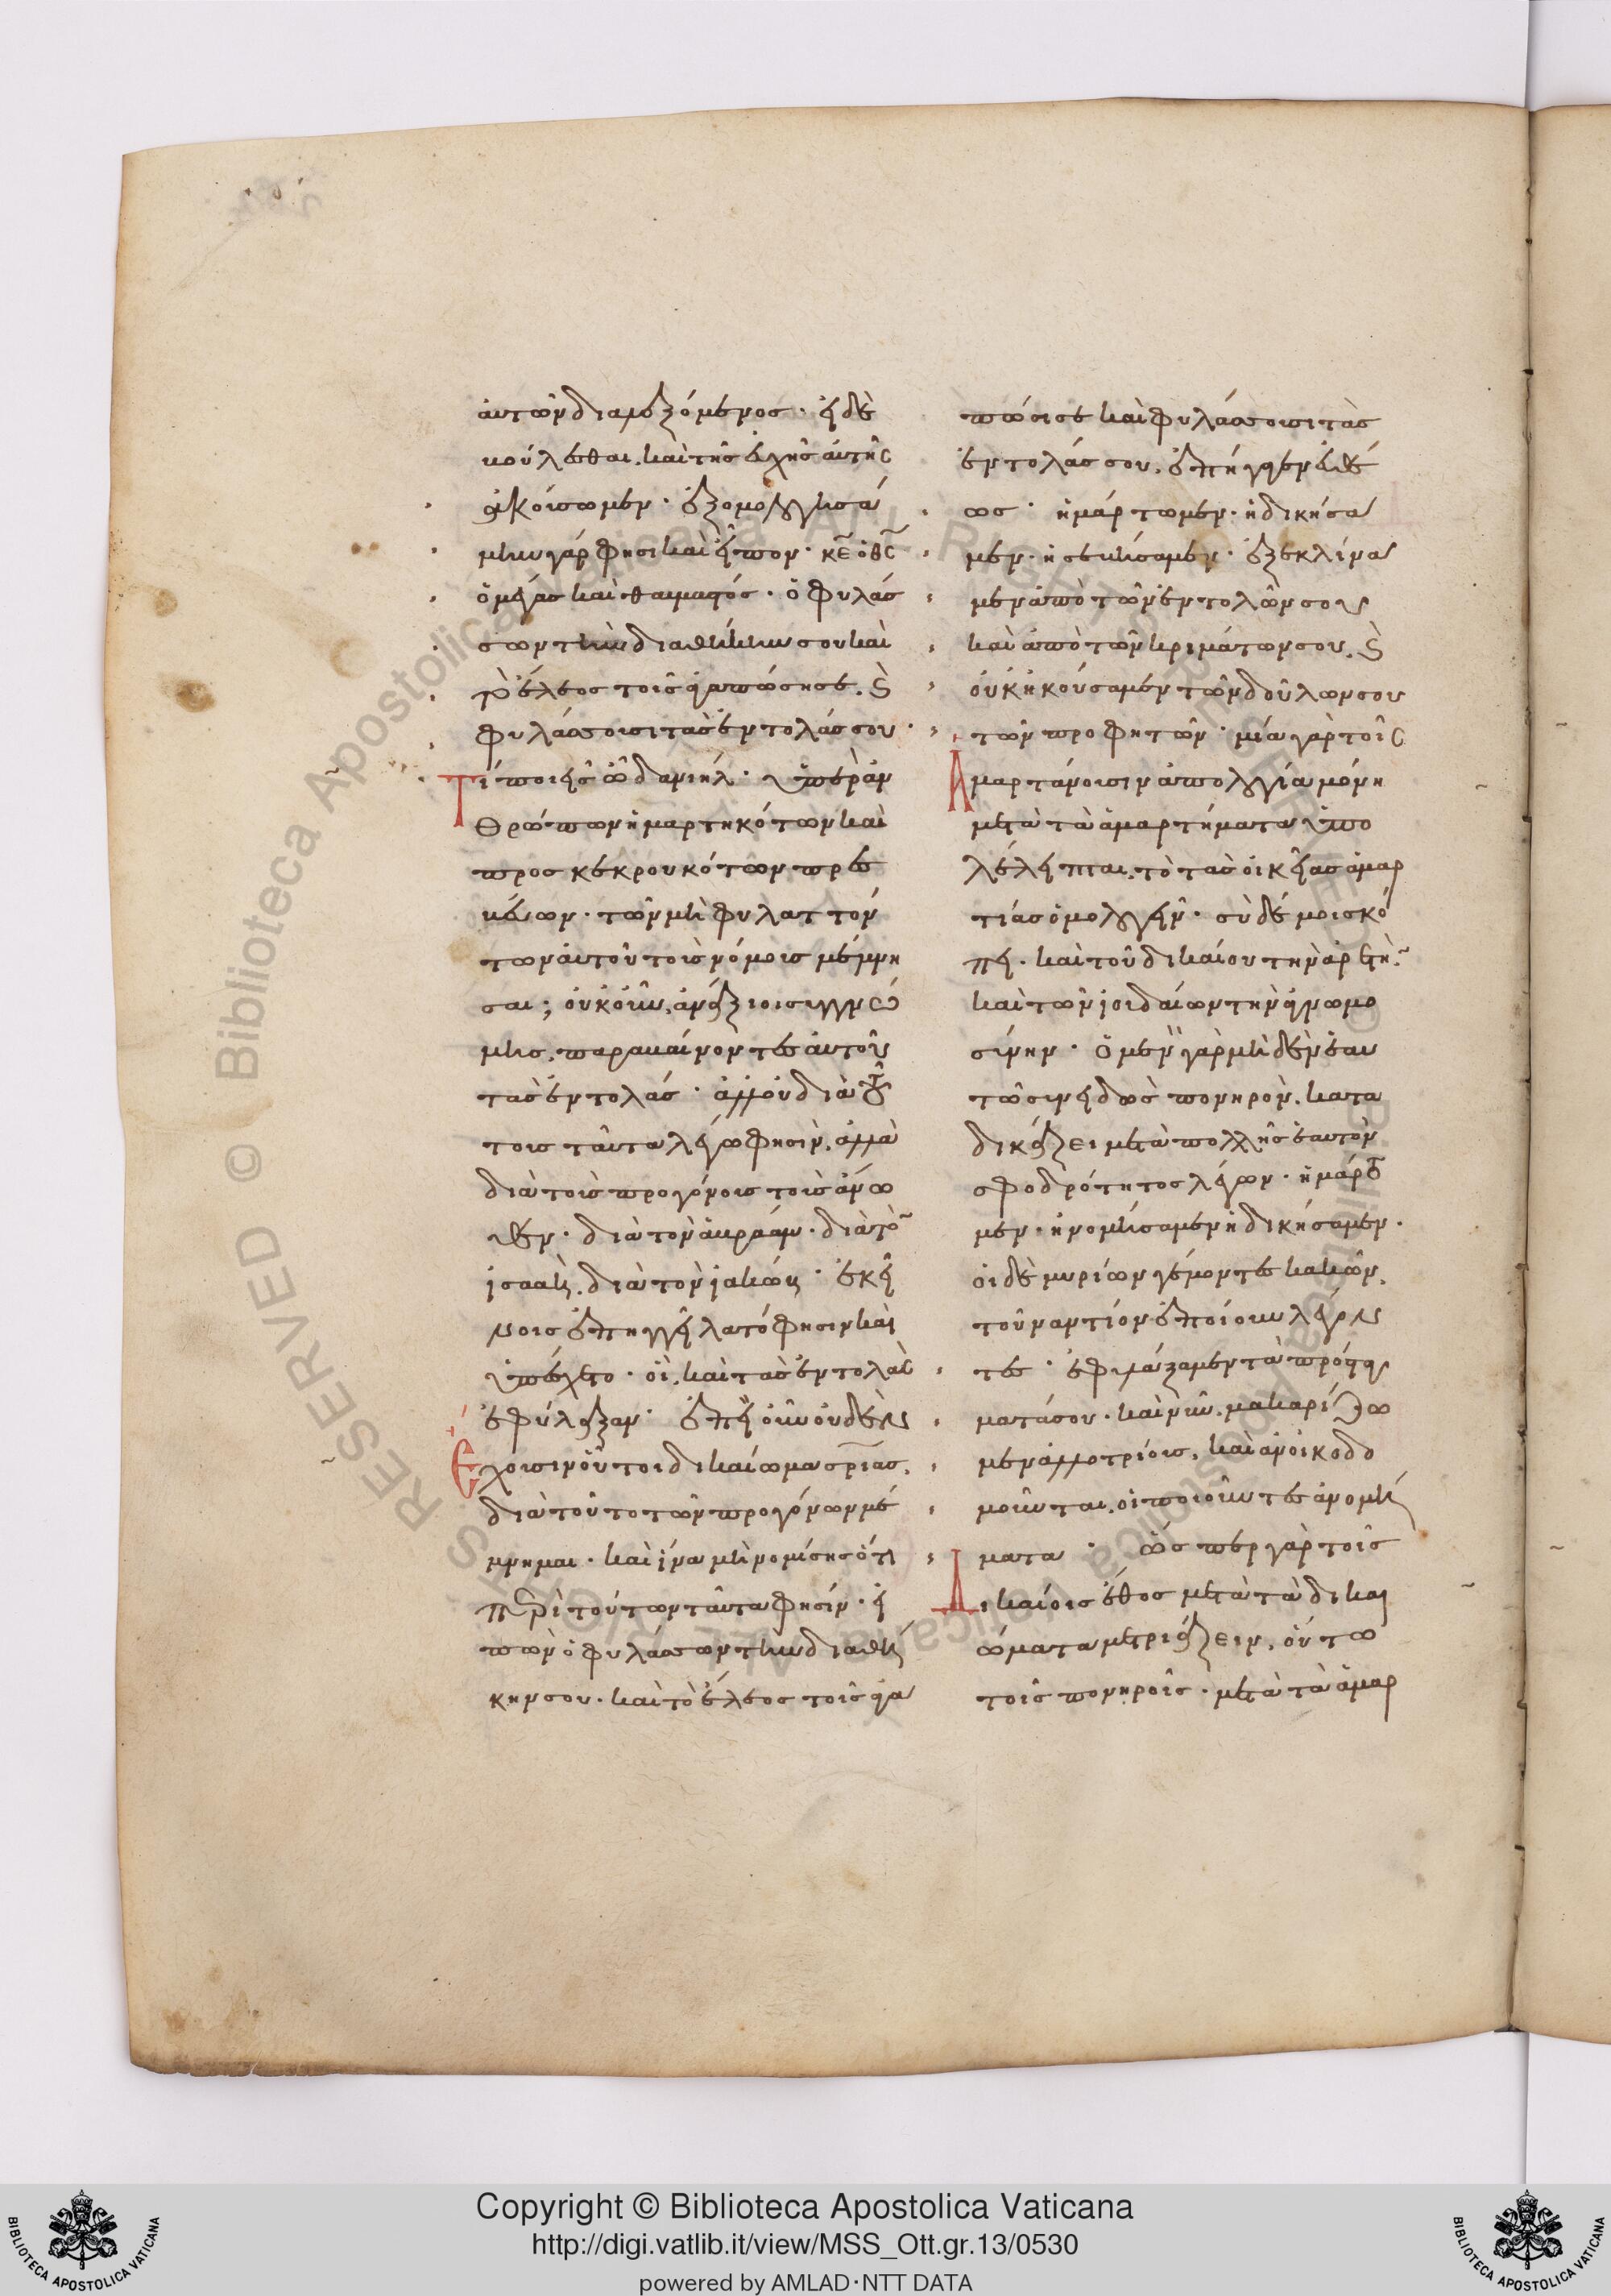 αὐτῶν διαλεξόμενος. εἰ δὲ
βούλεσθαι, καὶ τῆς εὐχῆς αὐτῆς
ἀκούσωμεν. ἐξομολογησά
μην γάρ φησι καὶ εἶπον. κε ὁ θς
ὁ μέγας καὶ θαυμαστός. ὁ φυλάσ
σων τὴν διαθήκην σου καὶ
τὸ ἔλεος τοῖς ἀγαπῶσί σε. καὶ
φυλάσσουσι τὰς ἐντολάς σου.
Τί ποιεῖς ὦ δανιήλ. ὑπὲρ ἀν
θρώπων ἡμαρτηκότων καὶ
προσκεκρουκότων πρεσ
βεύων. τῶν μὴ φυλαττόν
των αὐτοῦ τοὺς νόμους μέμνη
σαι; οὐκοῦν, ἀνάξιοι συγγνώ
μης, παραβαίνοντες αὐτοῦ
τὰς ἐντολάς. ἀλλ' οὐ διὰ τού
τους ταῦτα λέγω φησὶν, ἀλλὰ
διὰ τοὺς προγόνους τοὺς ἄνω
θεν. διὰ τὸν ἀβραάμ. διὰ τὸν
ἰσαὰκ, διὰ τὸν ἰακώβ. ἐκεί
νοις ἐπηγγείλατό φησιν καὶ
ὑπέσχετο. οἳ, καὶ τὰς ἐντολὰς
ἐφύλαξαν. ἐπεὶ οὖν οὐδὲν
ἔχουσιν οὗτοι δικαίωμα σρίας,
διὰ τοῦτο τῶν προγόνων μέ
μνημαι. καὶ ἵνα μὴ νομίσῃς ὅτι
περὶ τούτων ταῦτα φησίν. εἰ
πὼν ὁ φυλάσσων τὴν διαθή
κην σου. καὶ τὸ ἔλεος τοῖς ἀγα
πῶσί σε καὶ φυλάσσουσι τὰς
ἐντολάς σου, ἐπήγαγεν εὐθέ
ως. ἡμάρτωμεν. ἠδικήσα
μεν. ἠσεβήσαμεν. ἐξεκλίνα
μεν ἀπὸ τῶν ἐντολῶν σου
καὶ ἀπὸ τῶν κριμάτων σου. καὶ
οὐκ ἠκούσαμεν τῶν δούλων σου
τῶν προφητῶν. μία γὰρ τοῖς
ἁμαρτάνουσιν ἀπολογία μόνη
μετὰ τὰ ἁμαρτήματα ὑπο
λέλειπται, τὸ τὰς οἰκείας ἁμαρ
τίας ὁμολογεῖν. σὺ δέ μοι σκό
πει. καὶ τοῦ δικαίου τὴν ἀρετὴν
καὶ τῶν ἰουδαίων τὴν ἀγνωμο
σύνην. ὁ μὲν γὰρ μὴ δὲν ἑαυ
τῶ συνειδὼς πονηρὸν, κατα
δικάζει μετὰ πολλῆς ἑαυτὸν
σφοδρότητος λέγων. ἡμάρτο
μεν. ἠνομήσαμεν ἠδικήσαμεν.
οἱ δὲ μυρίων γέμοντες κακῶν,
τοὐναντίον ἐποίουν λέγον
τες. ἐφυλάξαμεν τὰ προστάγ
ματά σου. καὶ νῦν, μακαρίζο
μεν ἀλλοτρίους, καὶ ἀνοικοδο
μοῦνται, οἱ ποιοῦντες ἀνομή
ματα. ὥσπερ γὰρ τοῖς
Δικαίοις ἔθος μετὰ τὰ δικαι
ώματα μετριάζειν, οὕτω
τοῖς πονηροῖς. μετὰ τὰ ἁμαρ
Copyright © Biblioteca Apostolica Vaticana
http://digi.vatlib.it/view/MSS_Ott.gr.13/0530
powered by AMLAD · NTT DATA